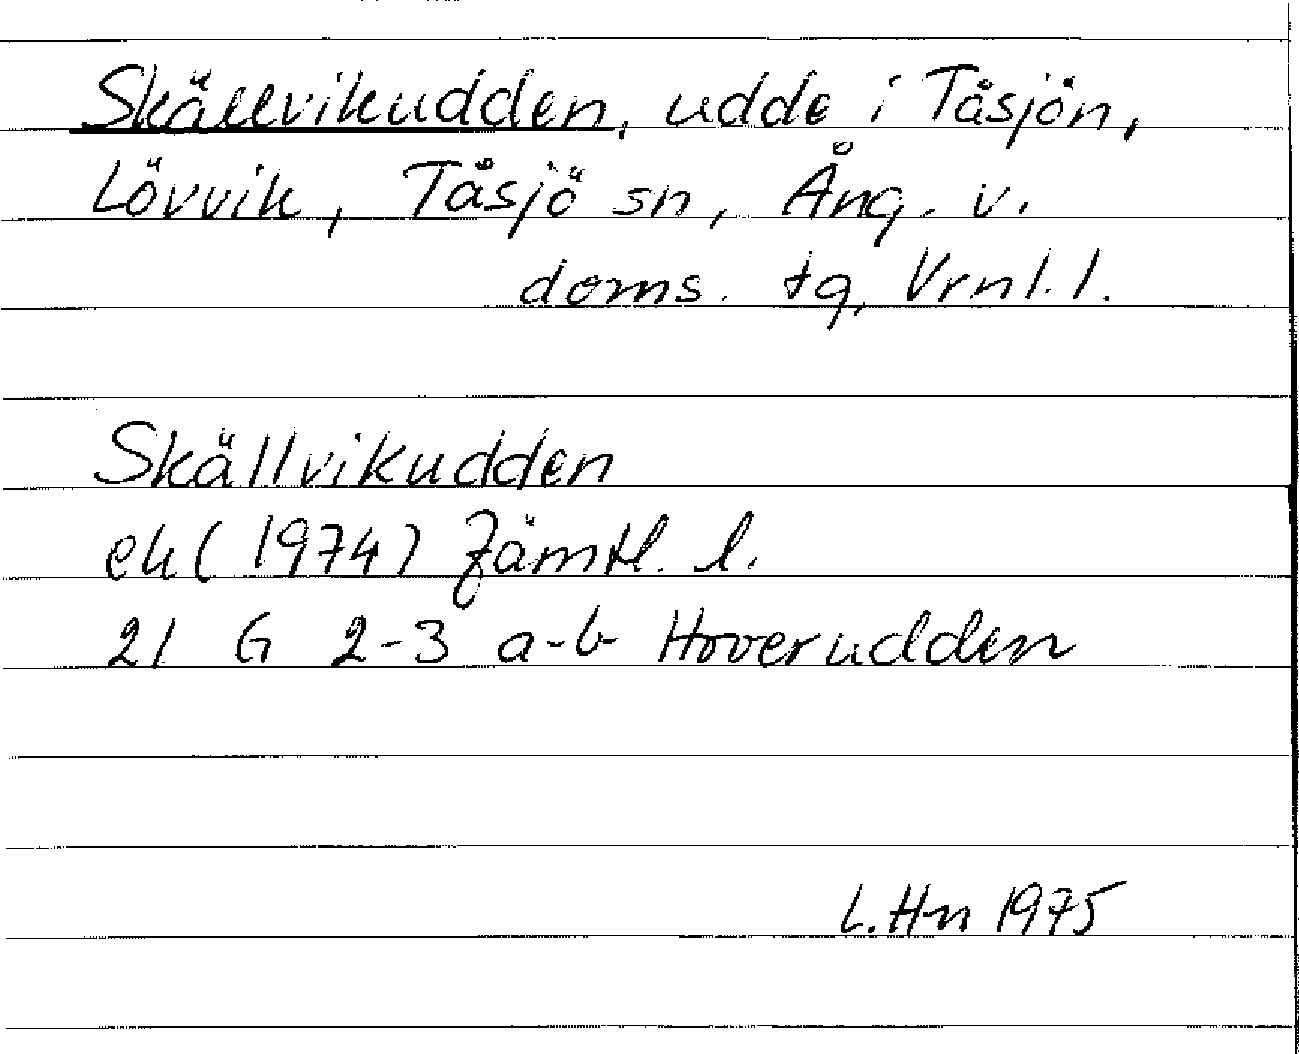 Skällvikudden, udde i Tåsjön,
Lövvik, Tåsjö sn, Ång. v.
doms. tg, Vrnl. l.
Skällvikudden
ek (1974) Jämtl. l.
21 G 2-3 a-b Hoverudden
L. Hn 1975